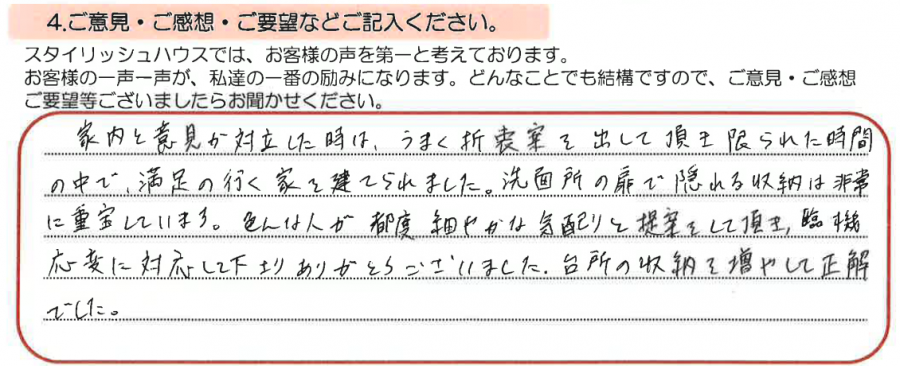 4.ご意見・ご感想・ご要望などご記入ください。
スタイリッシュハウスでは、お客様の声を第一と考えております。
お客様の一声一声が、私達の一番の励みになります。どんなことでも結構ですので、ご意見・ご感想
ご要望等ございましたらお聞かせください。
家内と意見が対立した時は、うまく折衷案を出して頂き限られた時間
の中で、満足の行く家を建てられました。洗面所の扉で隠れる収納は非常
に重宝しています。色んな人が都度細やかな気配りと提案をして頂き、臨機
応変に対応して下さりありがとうございました。台所の収納を増やして正解
でした。